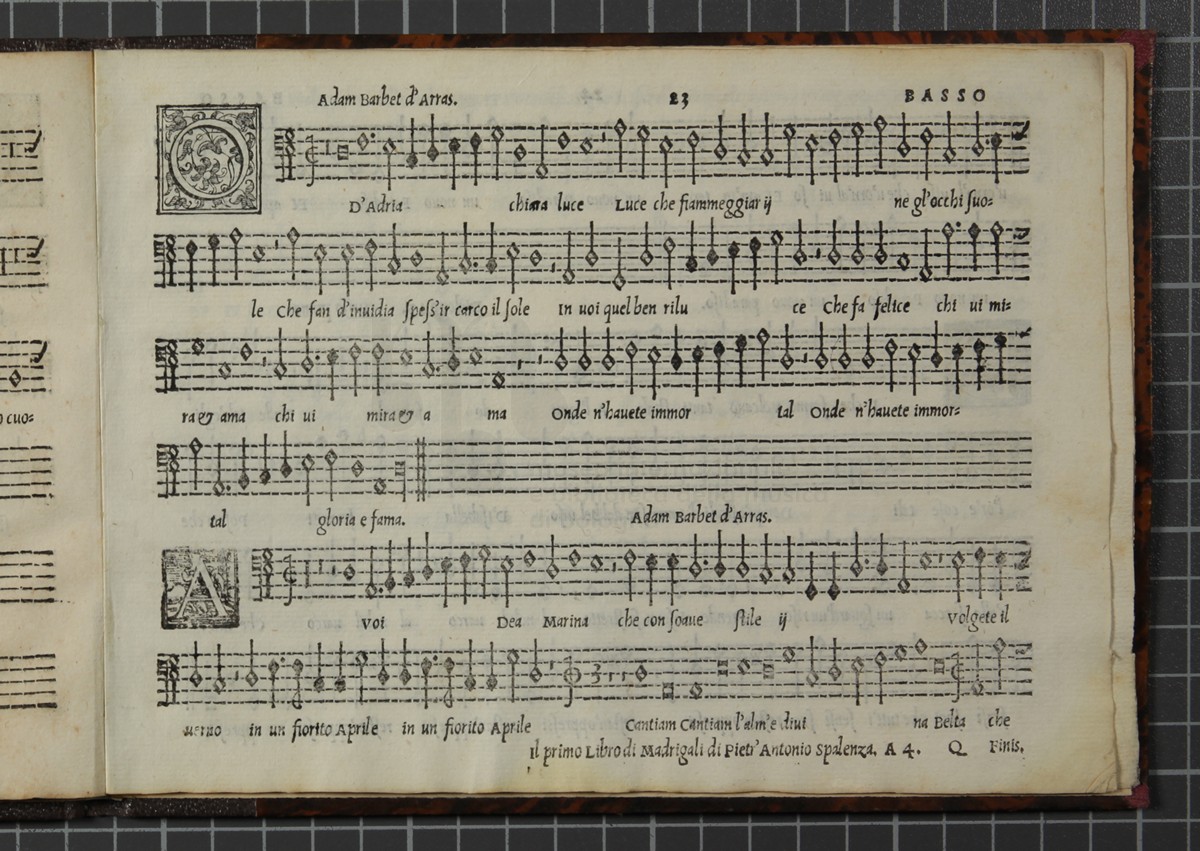 Adam Barbet d'Arras. 23 BASSO
O D'Adria chiara luce Luce che fiammeggiar ij ne gl'occhi suo=
le Che fan d'inuidia spess'ir carco il sole In uoi quel ben rilu ce Che fa felice chi ui mi=
ra & ama chi ui mira & a ma Onde n'hauete immor tal Onde n'hauete immor=
cuo=
tal gloria e fama. Adam Barbet d'Arras.
A voi Dea Marina che con soaue stile ij volgete il
uerno in un fiorito Aprile in un fiorito Aprile Cantiam Cantiam l'alm'e diui na Belta che
Il primo Libro di Madrigali di Pietr'Antonio Spalenza. A 4. Q Finis.